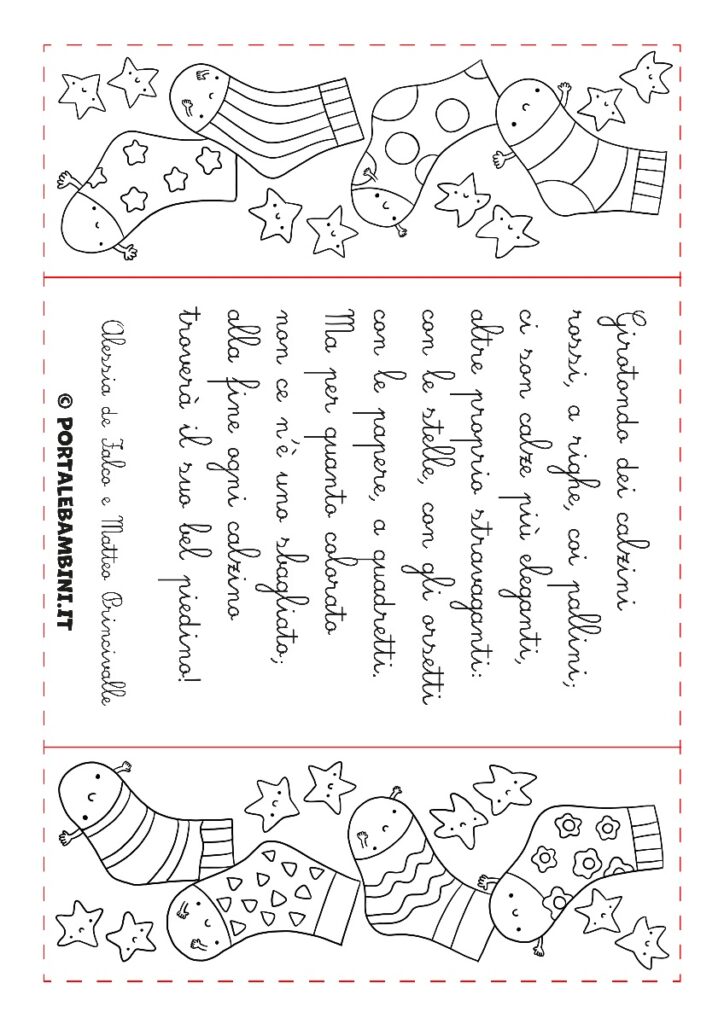 Girotondo dei calzini
rossi, a righe, coi pallini;
ci son calze più eleganti,
altre proprio stravaganti:
con le stelle, con gli orsetti
con le papere, a quadretti.
Ma per quanto colorato
non ce n'è uno sbagliato;
alla fine ogni calzino
troverà il suo bel piedino!
Alessia de Falco e Matteo Princivalle
© PORTALEBAMBINI.IT